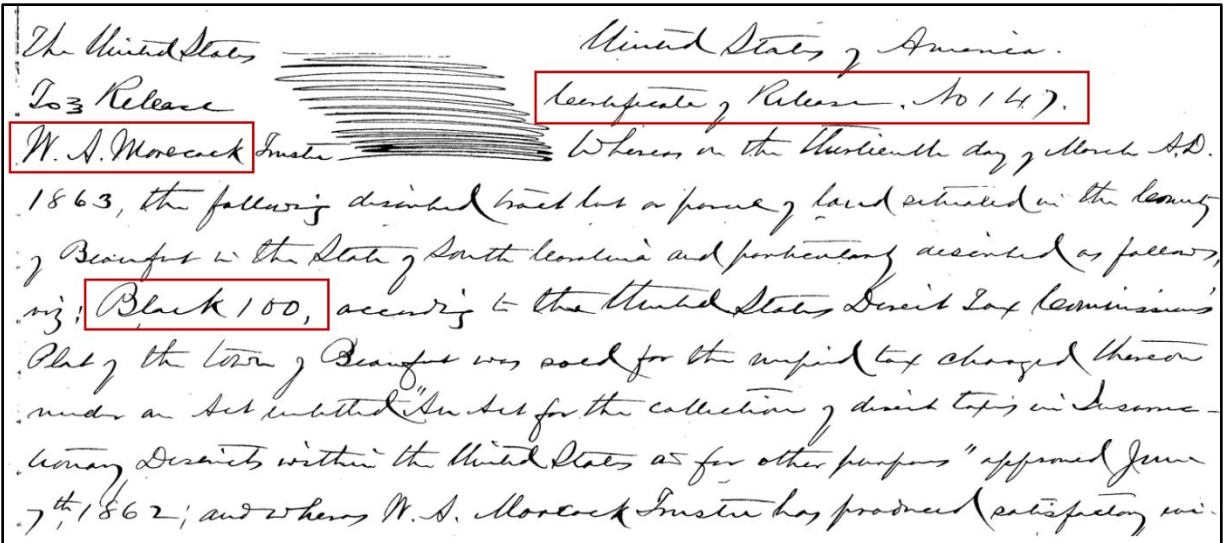 The United States
United States of America.
To } Release
Certificate of Release. No 147.
W. A. Morecock Trustee
Whereas on the thirtienth day of March A.D.
1863, the following discribed tract lot or parcel of land situated in the County
of Beaufort in the State of South Carolina and particularly described as follows,
viz; Block 100, according to the United States Direct Tax Commission's
Plat of the town of Beaufort was sold for the unpaid tax charged thereon
under an Act entitled "An Act for the collection of direct taxes in Insurrec-
tionary Districts within the United States and for other purposes" approved June
7th, 1862; and whereas W. A. Morecock Trustee has produced satisfactory evi-